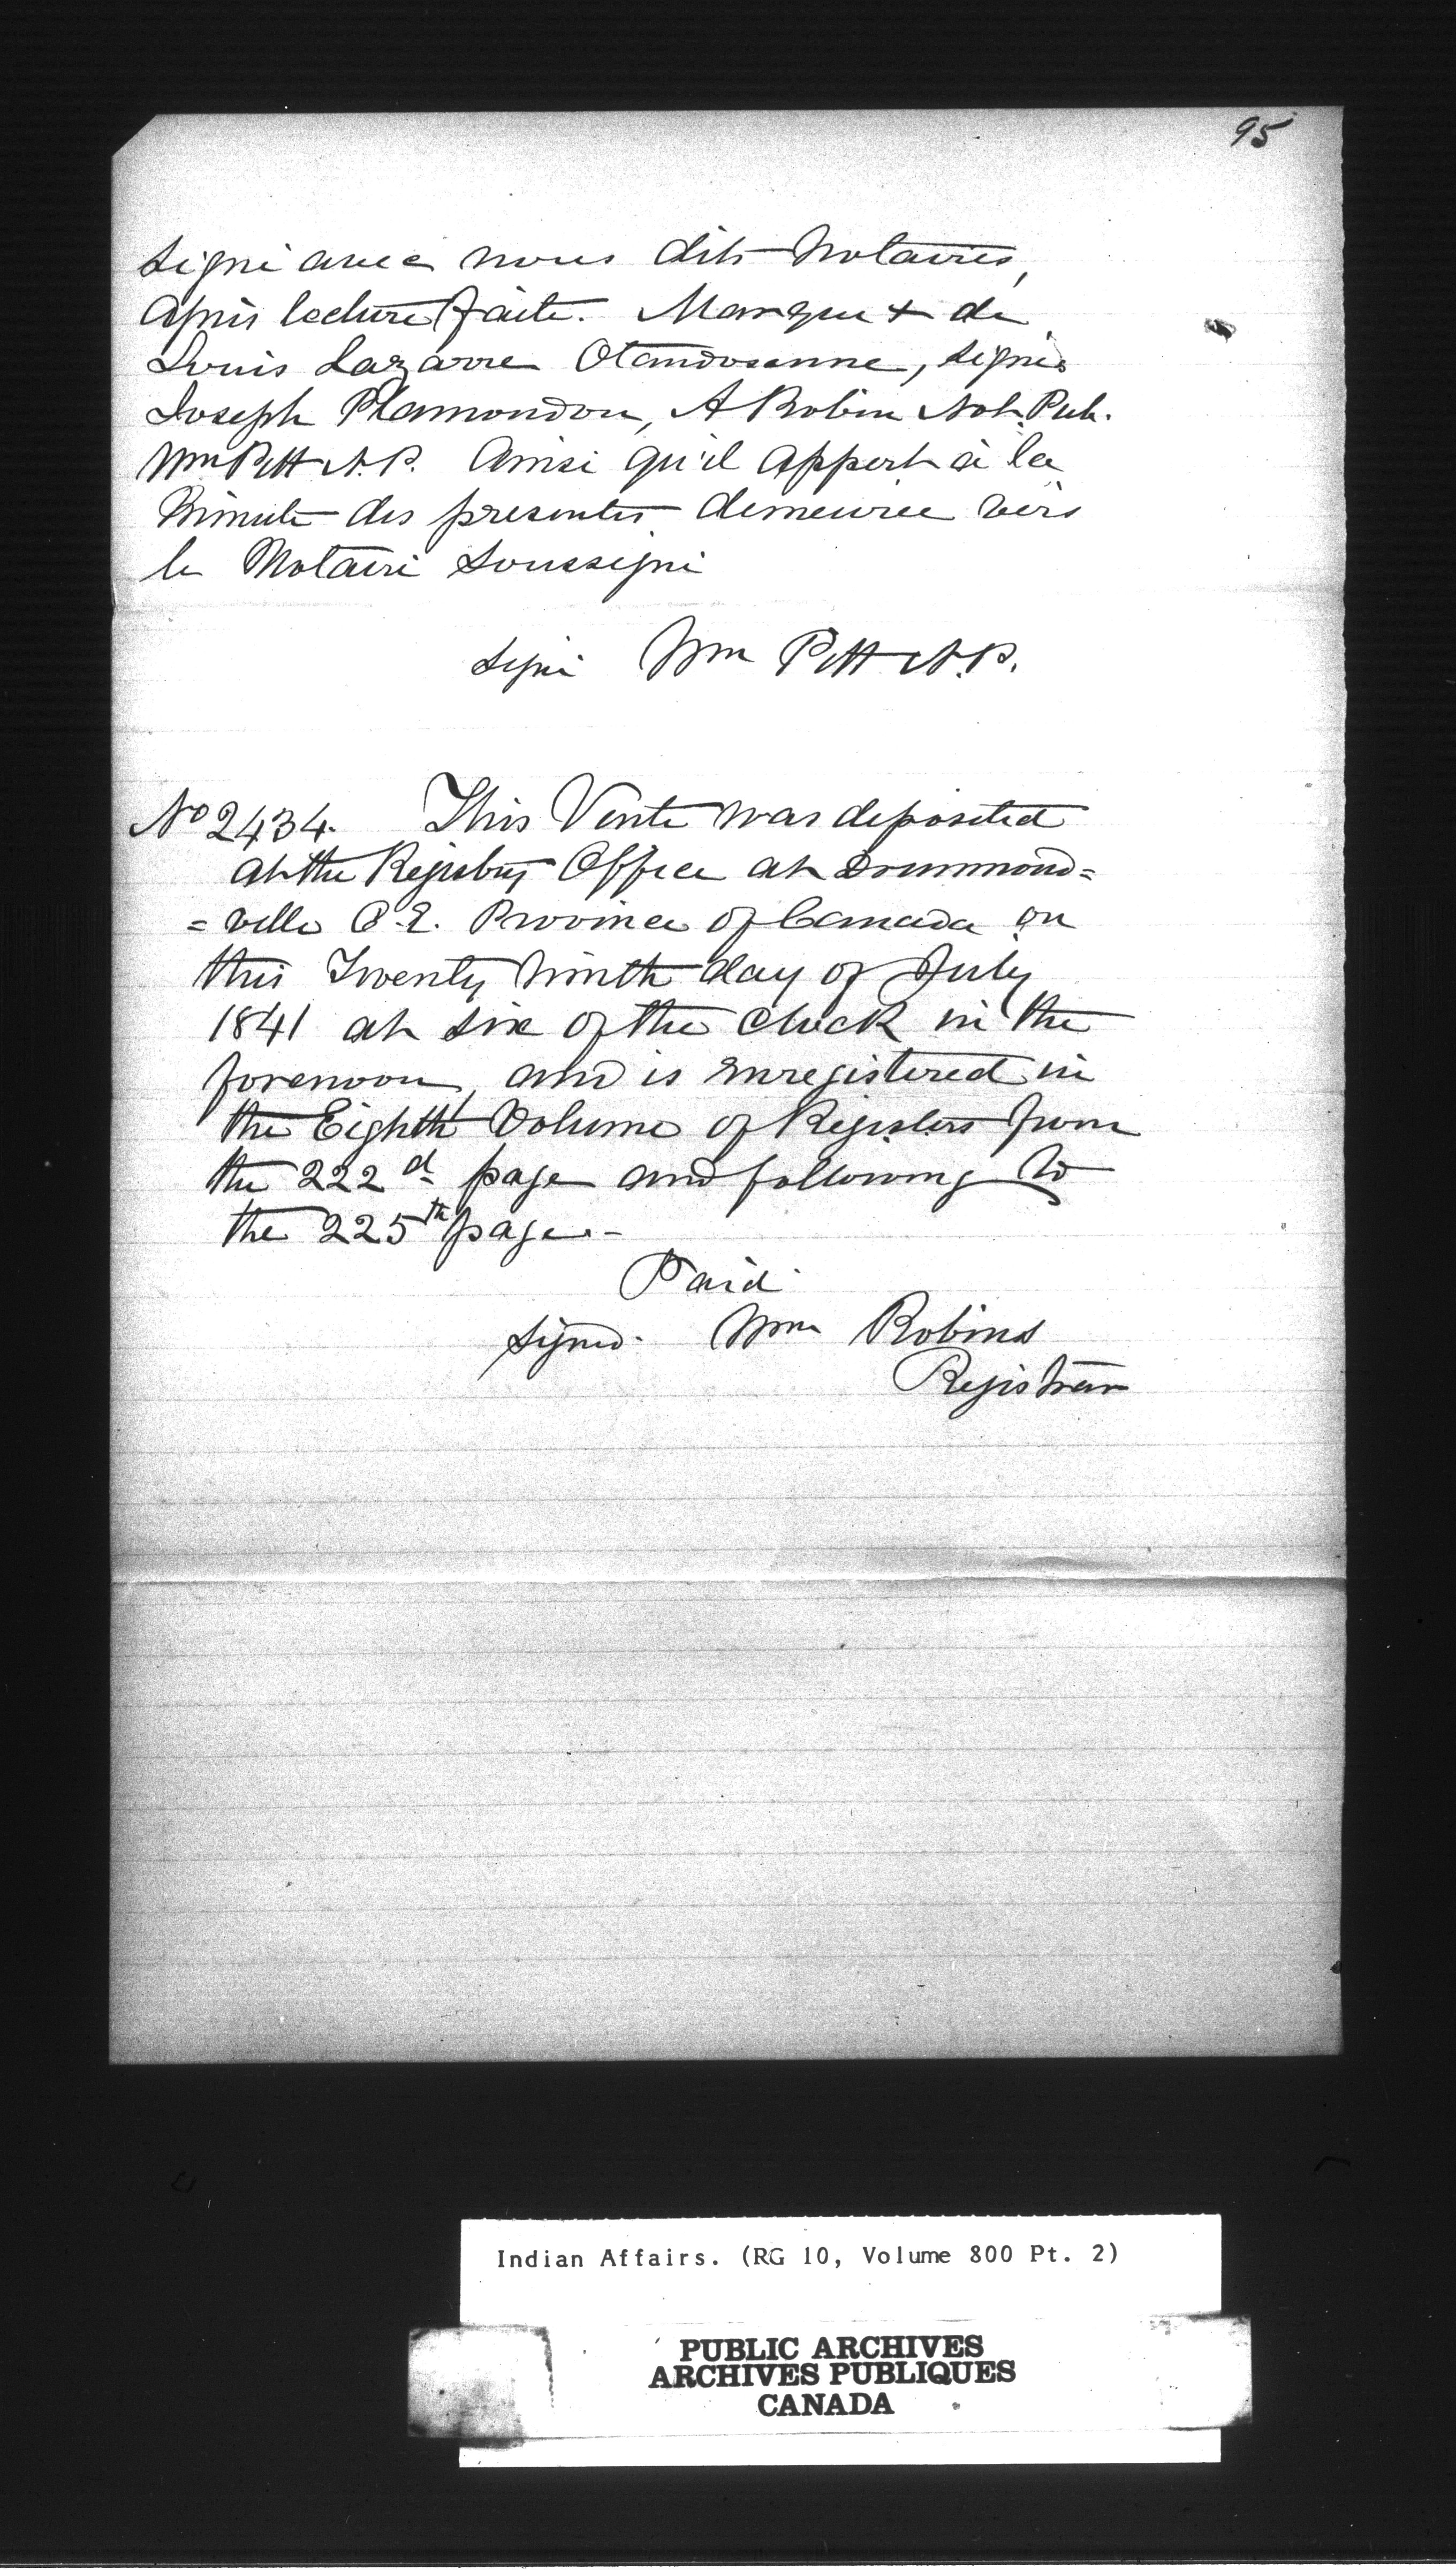 95
signé avec nous dits Notaires,
Après lecture faite. Marque + de
Louis Lazarre Otandosanne, signé
Joseph Plamondon, A Robin Not. Pub.
Wm Pitt N.P. Ainsi qu'il appert à la
Minute des presentes demeurée vers
le Notaire Soussigné
signé Wm Pitt N.P.
No 2434. This Vente was deposited
at the Registry Office at Drummond=
=ville C.E. Province of Canada on
this Twenty Ninth day of July
1841 at six of the Clock in the
forenoon, and is enregistered in
the Eighth Volume of Registers from
the 222d page and following to
the 225th page.-
Paid
signed. Wm Robins
Registrar
Indian Affairs. (RG 10, Volume 800 Pt. 2)
PUBLIC ARCHIVES
ARCHIVES PUBLIQUES
CANADA